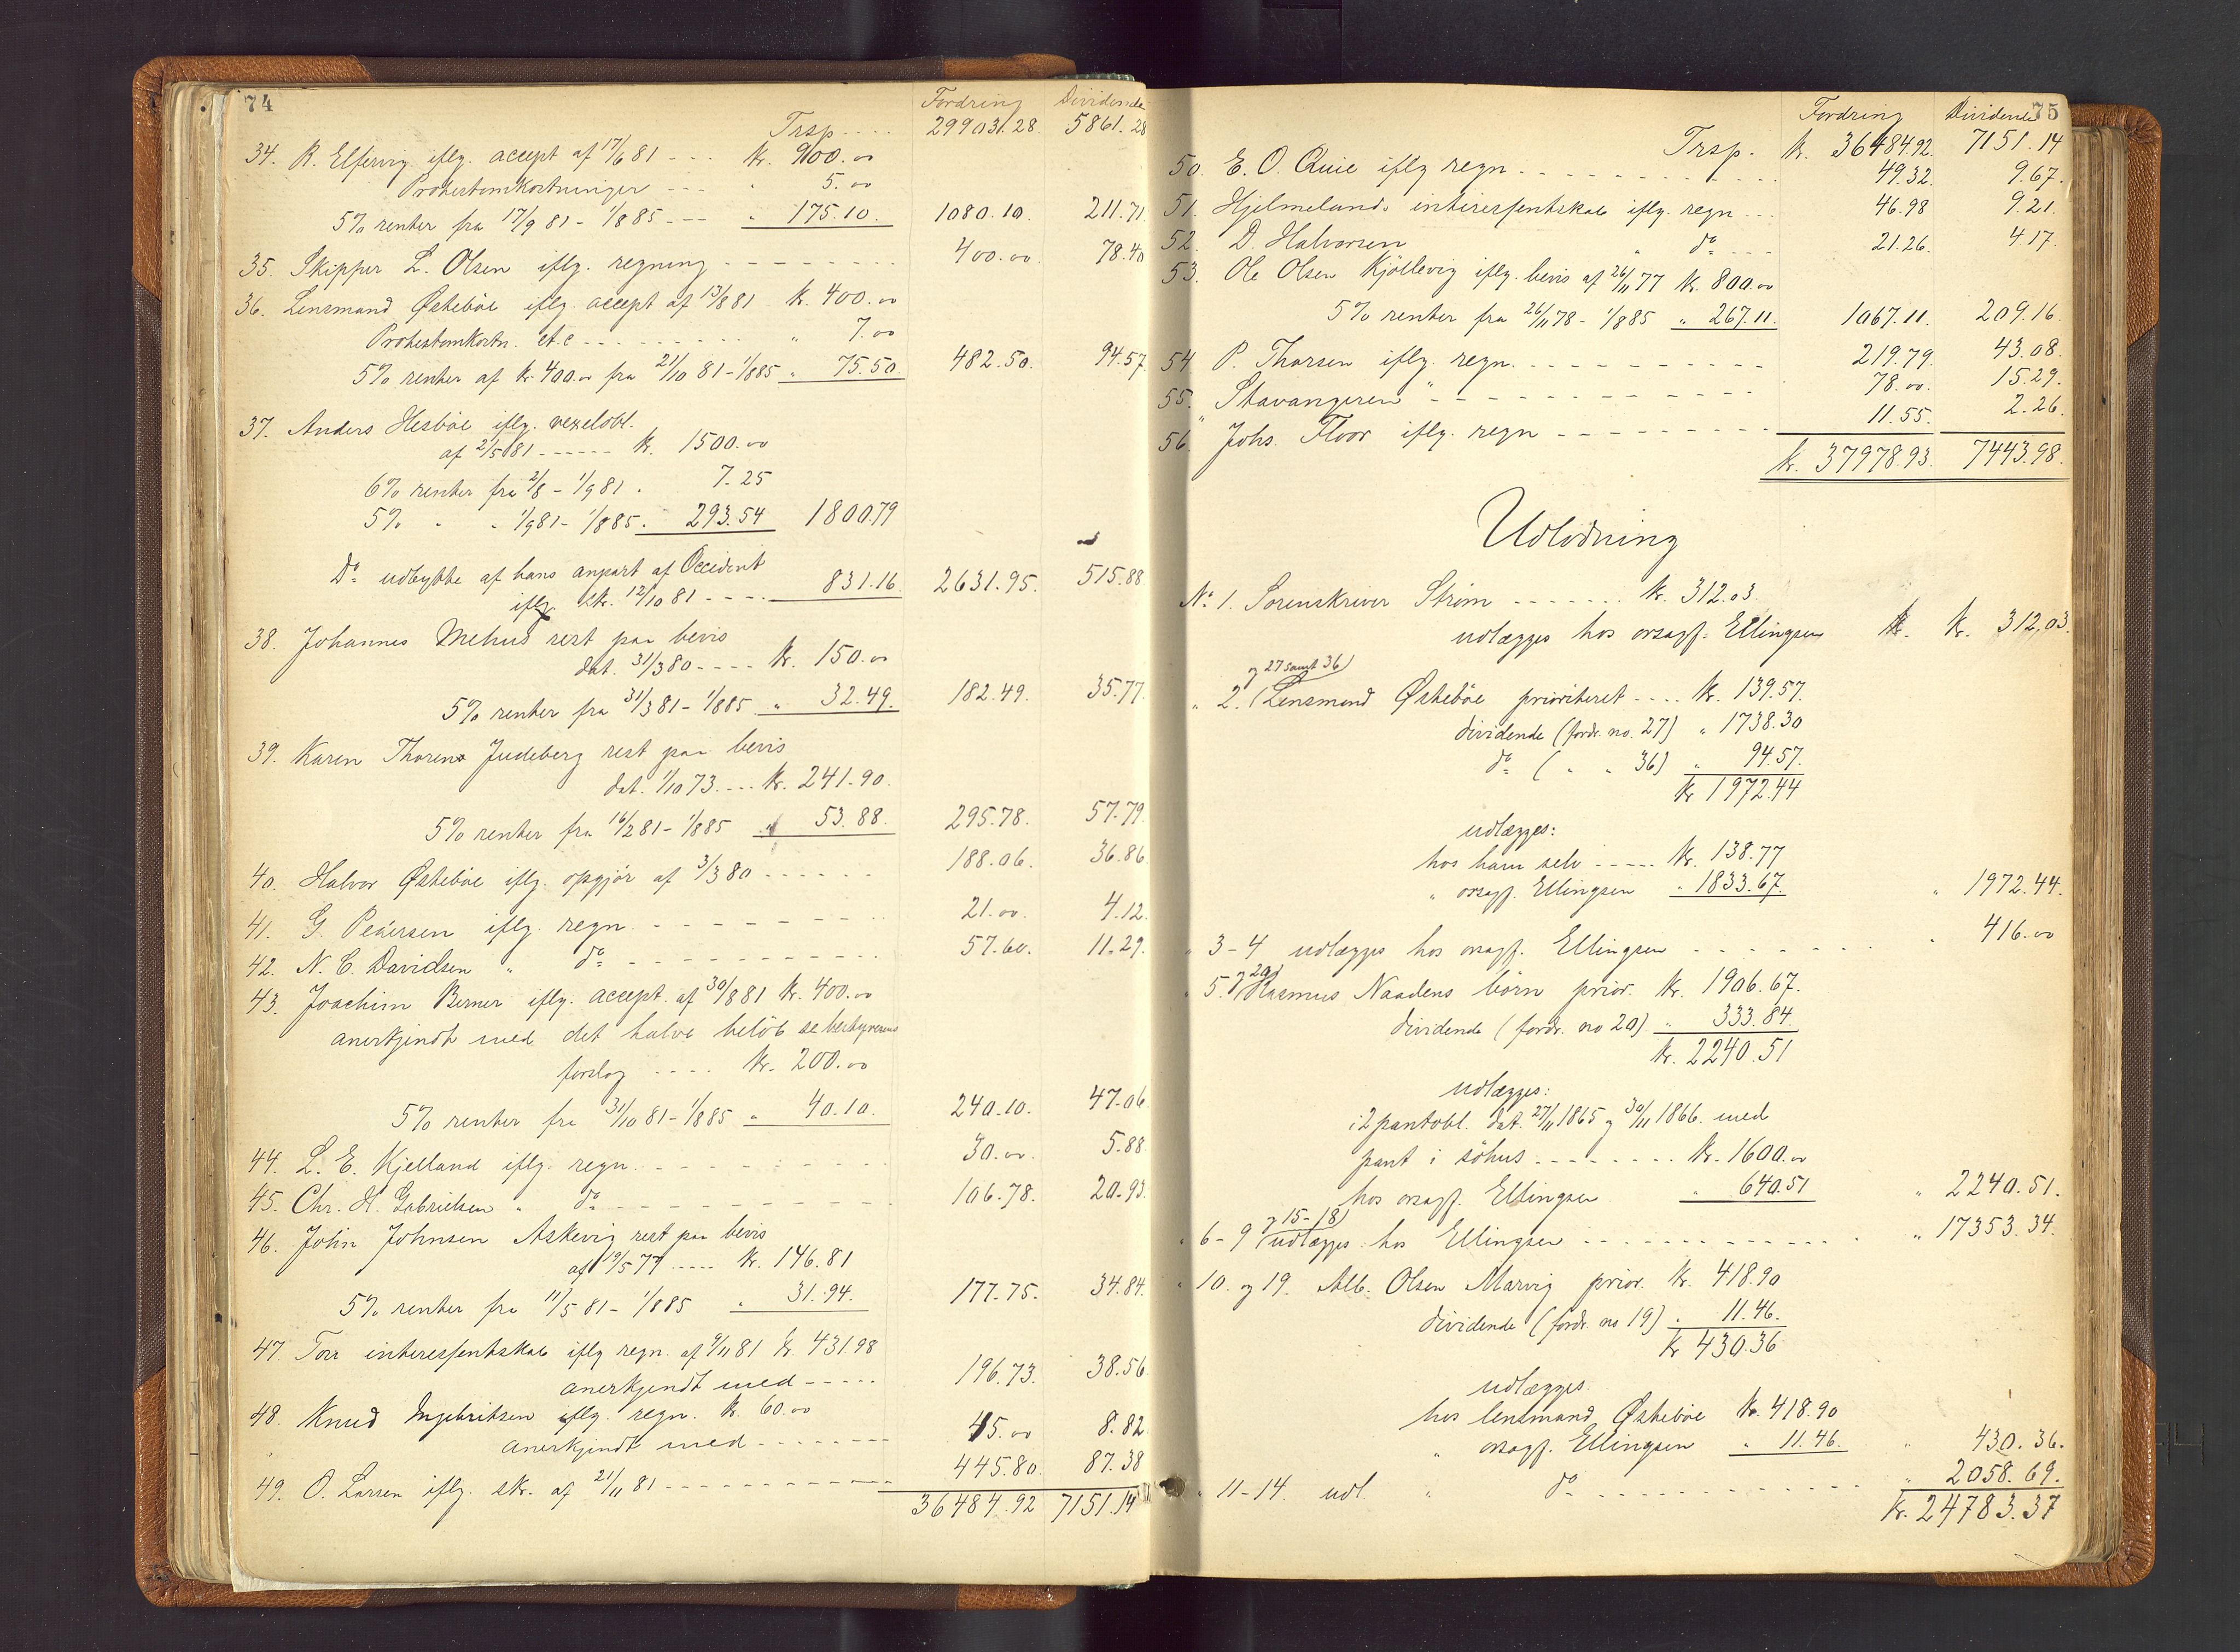 74
Fordring Dividende
Trsp.... 29903.28. 5861.28
34. R. Elfervig iflg. accept af 17/6 81 --- Kr. 900.00
Protestomkostninger --- " 5.00
5% renter fra 17/9 81 - 1/8 85 --- " 175.10. 1080.10. 211.71
35. Skipper L. Olsen iflg. regning -------- 400.00. 78.40
36. Lensmand Østebøe iflg. accept af 13/8 81 Kr. 400.00
Protestomkostn. etc --------- " 7.00
5% renter af Kr. 400.00 fra 21/10 81 - 1/8 85 " 75.50. 482.50. 94.57
37. Anders Hesbøe iflg. vexelobl.
af 2/5 81 ----- Kr. 1500.00
6% renter fra 2/8 - 1/9 81 . 7.25
5% " " 1/9 81 - 1/8 85. 293.54 1800.79
Do udbytte af hans anpart af Occident
iflg. skr. 12/10 81 ---- 831.16. 2631.95. 515.88
38. Johannes Mehus rest paa bevis
dat. 31/3 80 ---- Kr. 150.00
5% renter fra 31/3 81 - 1/8 85 " 32.49. 182.49. 35.77.
39. Karen Thorens Judeberg rest paa bevis
dat. 1/10 73 .... Kr. 241.90.
5% renter fra 16/2 81 - 1/8 85 " 53.88. 295.78. 57.79
40. Halvor Østebøe iflg. opgjør af 3/3 80 ------ 188.06. 36.86
41. G. Pedersen iflg. regn. ------- 21.00. 4.12
42. N. C. Davidsen " do ----------- 57.60. 11.29.
43. Joachim Berner iflg. accept. af 30/8 81 Kr. 400.00
anerkjendt med det halve beløb se bestyrerens
forslag .... Kr. 200.00
5% renter fra 31/10 81 - 1/8 85 " 40.10. 240.10. 47.06
44. L. E. Kjelland iflg. regn. -------- 30.00. 5.88
45. Chr. H. Gabrielsen " do --------- 106.78. 20.93
46. John Johnsen Askevig rest paa bevis
af 19/5 77 ..... Kr. 146.81
5% renter fra 11/5 81 - 1/8 85 " 31.94. 177.75. 34.84.
47. Torr interessentskab iflg regn. af 9/11 81 Kr. 431.98
anerkjendt med ----- 196.73. 38.56
48. Knud Ingebritsen iflg. regn. Kr. 60.00
anerkjendt med ------- 45.00 8.82
49. O. Larsen iflg. skr. af 21/11 81 ---------- 445.80. 87.38
36484.92 7151.14
75
Fordring Dividende
Trsp. Kr. 36484.92. 7151.14
50. E. O. Quie iflg regn ----------- 49.32. 9.67.
51. Hjelmelands interessentskab iflg. regn --- 46.98 9.21.
52. D. Halvorsen " do ---- 21.26. 4.17.
53. Ole Olsen Kjöllevig iflg. bevis af 26/11 77 Kr. 800.00
5% renter fra 26/11 78 - 1/8 85 " 267.11. 1067.11. 209.16.
54 P. Thorsen iflg. regn. ---------- 219.79. 43.08.
55. Stavangeren " ----------- 78.00. 15.29.
56. Johs. Floor iflg. regn --------- 11.55. 2.26.
Kr. 37978.93. 7443.98.
Udlodning
No 1. Sorenskriver Strøm ------- Kr. 312.03.
udlægges hos orsagf. Ellingsen Kr. Kr. 312,03.
og 27 samt 36)
" 2. (Lensmand Østebøe prioriteret .... Kr. 139.57.
dividende (fordr. no. 27) " 1738.30
do ( " " 36) " 94.57.
Kr 1972.44
udlægges:
hos ham selv ----- Kr. 138.77
" orsagf. Ellingsen " 1833.67. " 1972.44.
" 3-4 udlægges hos orsagf. Ellingsen -------- " 416.00
" 5. og 20) Rasmus Naadens børn prior. Kr. 1906.67.
dividende (fordr. no 20) " 333.84.
Kr. 2240.51
udlægges:
i 2 pantobl. dat. 27/11 1865 og 30/11 1866. med
pant i söhus -------- Kr. 1600.00
hos orsagf. Ellingsen " 640.51 " 2240.51.
og 15-18)
" 6-9 (udlægges hos Ellingsen ------------ " 17353.34.
" 10. og 19. Alb. Olsen Marvig prior. Kr. 418.90
dividende (fordr. no 19) " 11.46.
Kr 430.36
udlægges.
hos lensmand Østebøe Kr. 418.90
" orsagf. Ellingsen " 11.46. " 430.36.
" 11-14. udl. " do ------------ " 2058.69.
Kr. 24783.37